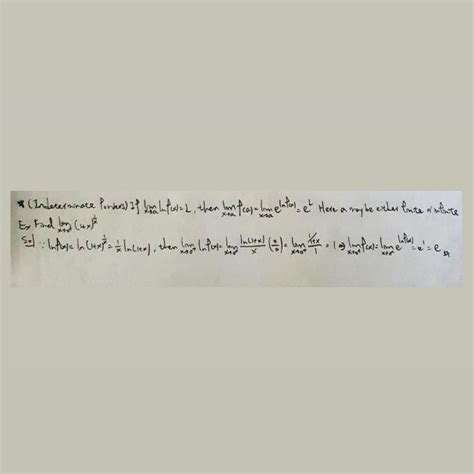 * (Indeterminate Powers) If lim x→a ln f(x) = L, then lim x→a f(x) = lim x→a e^(ln f(x)) = e^L Here a may be either finite or infinite
Ex. Find lim x→0⁺ (1+x)^(1/x)
Sol ∵ ln f(x) = ln (1+x)^(1/x) = 1/x ln(1+x), then lim x→0⁺ ln f(x) = lim x→0⁺ ln(1+x)/x (0/0) = lim x→0⁺ (1/(1+x))/1 = 1 ⇒ lim x→0⁺ f(x) = lim x→0⁺ e^(ln f(x)) = e¹ = e